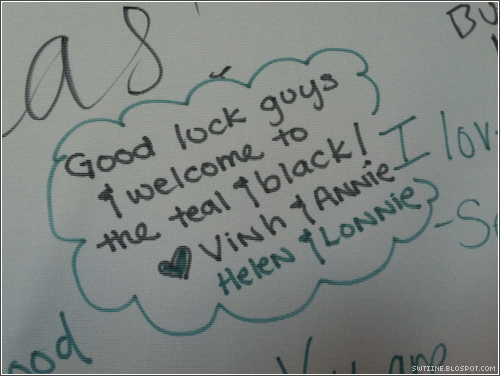 as
Bu
Good luck guys
& welcome to
the teal & black!
♥ Vinh & ANNie
Helen & LONNie
I lov
ood
SWTIINE.BLOSPOT.COM